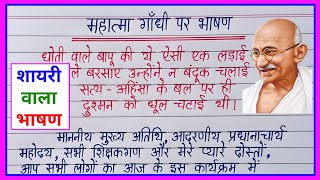 महात्मा गाँधी पर भाषण
धोती वाले बापू की थे ऐसी एक लड़ाई
ले बरसाए उन्होंने न बंदूक चलाई
सत्य - अहिंसा के बल पर ही
दुश्मन को धूल चटाई थी।
माननीय मुख्य अतिथि, आदरणीय प्रधानाचार्य
महोदय, सभी शिक्षकगण और मेरे प्यारे दोस्तों,
आप सभी लोगों का आज के इस कार्यक्रम में
शायरी
वाला
भाषण